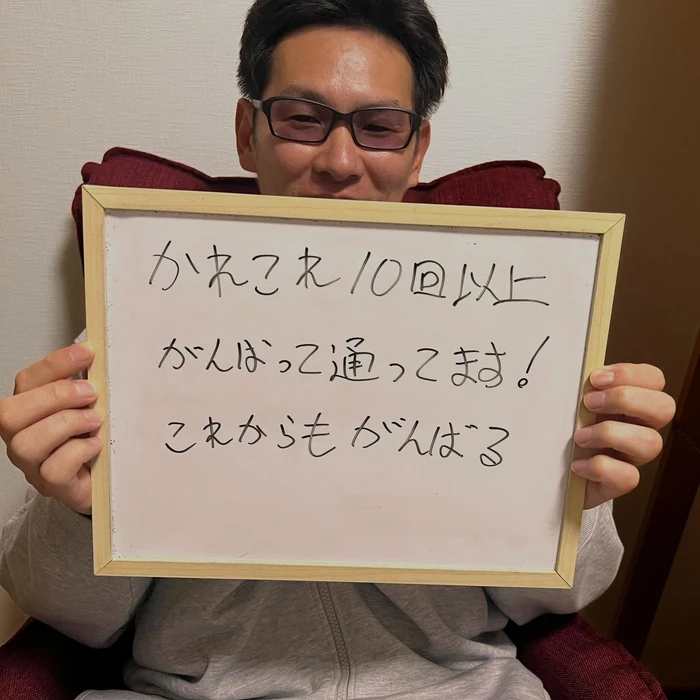 かれこれ10回以上
がんばって通ってます!
これからもがんばる